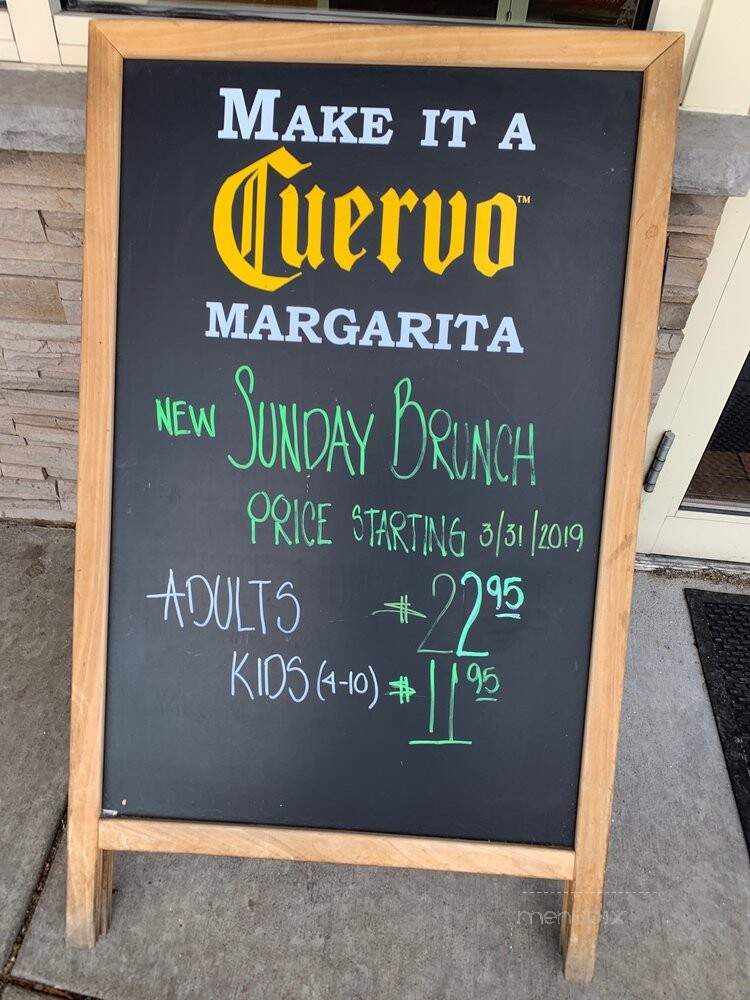 MAKE IT A
Cuervo™
MARGARITA
NEW SUNDAY BRUNCH
PRICE STARTING 3/31/2019
ADULTS $22.95
KIDS (4-10) $11.95
menupix